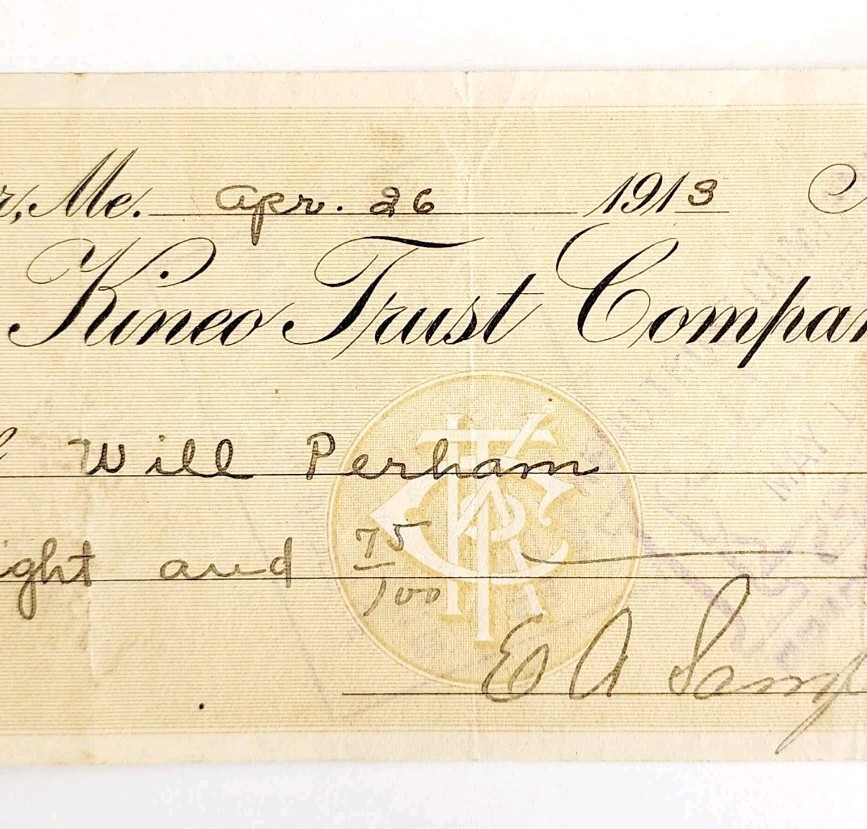 r, Me. Apr. 26 1913
Kineo Trust Compan
Will Perham
ight and 75/100
E A Samp
MAY 1